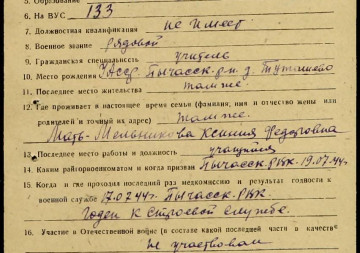 5. Образование
6. На ВУС 133
7. Должностная квалификация не имеет
8. Военное звание рядовой
9. Гражданская специальность учитель
10. Место рождения УАССР, Пычасск. р-н д.
11. Последнее место жительства там же.
12. Где проживает в настоящее время семья (фамилия, имя и отчество жены или
родителей и точный их адрес) там же.
Мать-Мельникова Ксения Федоровна
13. Последнее место работы и должность учащийся
14. Каким райгорвоенкоматом и когда призван Пычасск. РВК. 19.07.44 г.
15. Когда и где проходил последний раз медкомиссию и результат годности к
военной службе 17.07.44 г. Пычасск. РВК.
Годен к строевой службе.
16. Участие в Отечественной войне (в составе какой последней части в качеств
не участвовал